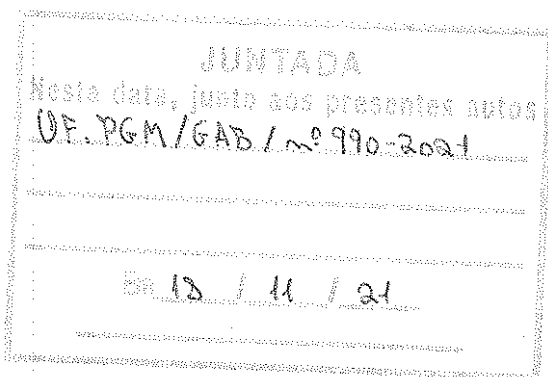 JUNTADA
Nesta data, junto aos presentes autos
OF. PGM/GAB/nº 990-2021
Em 18 / 11 / 21